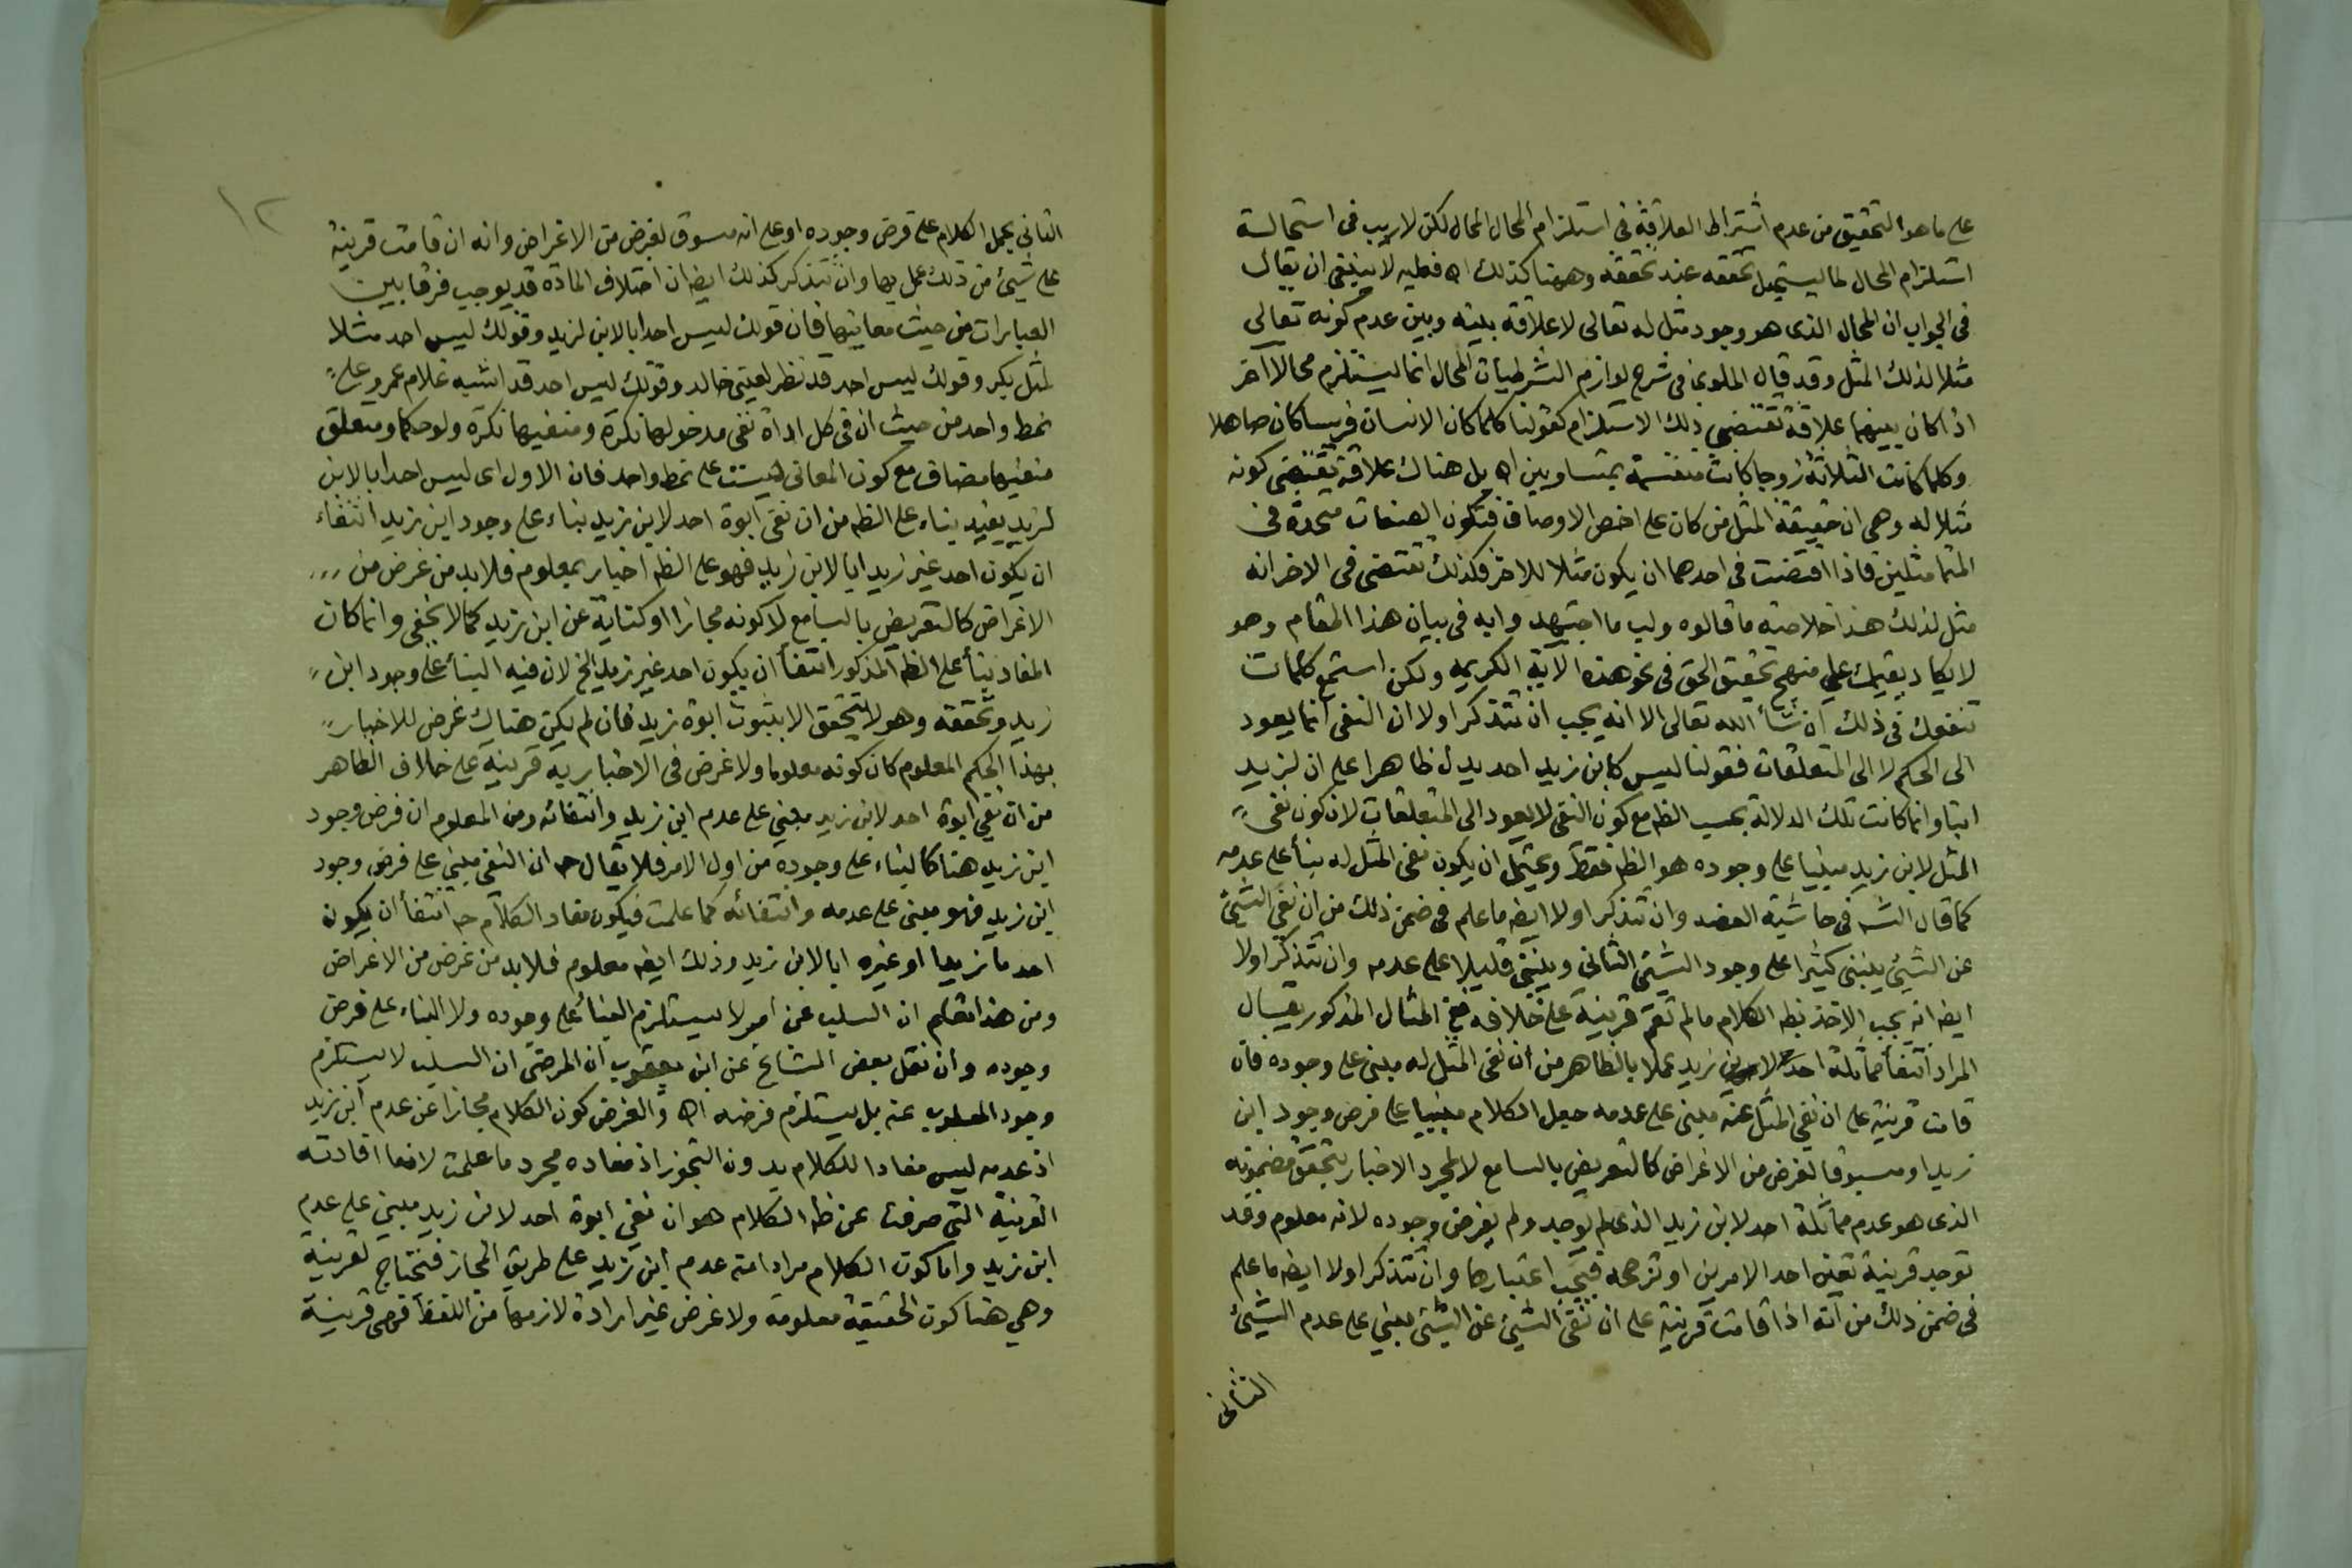 على ما هو التحقيق من عدم اشتراط العلاقة في استلزام المحال المحال لكن لا ريب في استحالة
استلزام المحال لما يستحيل تحققه عند تحققه وههنا كذلك اه فعليه لا ينبغي ان يقال
في الجواب ان المحال الذي هو وجود مثل له تعالى لا علاقة بينه وبين عدم كونه تعالى
مثلا لذلك المثل وقد قال الملوي في شرح لوازم الشرطيات المحال انما يستلزم محالا آخر
اذا كان بينهما علاقة تقتضي ذلك الاستلزام كقولنا كلما كان الانسان فرسا كان صاهلا
وكلما كانت الثلاثة زوجا كانت منقسمة بمتساويين اه بل هناك علاقة تقتضي كونه
مثلا له وهي ان حقيقة المثل من كان على اخص الاوصاف فتكون الصفات متحدة في
المتماثلين فاذا اقتضت في احدهما ان يكون مثلا للاخر فكذلك تقتضي في الاخر انه
مثل لذلك هذا خلاصة ما قالوه ولب ما اجتهدوا به في بيان هذا المقام وهو
لا يكاد يقيمك على منهج تحقيق الحق في نحو هذه الآية الكريمه ولكن استمع كلمات
تنفعك في ذلك ان شأ الله تعالى الا انه يجب ان تتذكر اولا ان النفي انما يعود
الى الحكم لا الى المتعلقات فقولنا ليس كابن زيد احد يدل ظاهرا على ان لزيد
ابنا وانما كانت تلك الدلالة بحسب الظه مع كون النفي لا يعود الى المتعلقات لان كون نفي
المثل لابن زيد مبنيا على وجوده هو الظه فقط ويحتمل ان يكون نفى المثل له بنأ على عدمه
كما قال الشه في حاشية العضد وان تتذكر اولا ايضه ما علم في ضمن ذلك من ان نفي الشئ
عن الشئ ينبني كثيرا على وجود الشئ الثاني وينبني قليلا على عدمه وان تتذكر اولا
ايضه انه يجب الاخذ بظه الكلام ما لم تقم قرينة على خلافه ففي المثال المذكور يقال
المراد انتفأ مماثلة احد لابن زيد عملا بالظاهر من ان نفى المثل له مبنى على وجوده فان
قامت قرينة على ان نفي المثل عنه مبنى على عدمه جعل الكلام مبنيا على فرض وجود ابن
زيد او مسوقا لغرض من الاغراض كالتعريض بالسامع لا لمجرد الاخبار بتحقق مضمونه
الذي هو عدم مماثلة احد لابن زيد الذي لم يوجد ولم يفرض وجوده لانه معلوم وقد
توجد قرينة تعين احد الامرين او ترجحه فيجب اعتبارها وان تتذكر اولا ايضه ما علم
في ضمن ذلك من انه اذا قامت قرينة على ان نفي الشئ عن الشئ مبني على عدم الشئ
الثاني
١٢
الثاني يحمل الكلام على فرض وجوده او على انه مسوق لغرض من الاغراض وانه ان قامت قرينة
على شئ من ذلك عمل بها وان تتذكر كذلك ايضه ان اختلاف المادة قد يوجب فرقا بين
العبارات من حيث معانيها فان قولك ليس احد ابا لابن لزيد وقولك ليس احد مثلا
لمثل بكر وقولك ليس احد قد نظر لعيني خالد وقولك ليس احد قد اشبه غلام عمرو على
نمط واحد من حيث ان في كل اداة نفى مدخولها نكرة ومنفيها نكرة ولو حكما ومتعلق
منفيها مضاف مع كون المعاني ليست على نمط واحد فان الاول اي ليس احد ابا لابن
لزيد يفيد بناء على الظه من ان نفي ابوة احد لابن زيد بناء على وجود ابن زيد انتفاء
ان يكون احد غير زيد ابا لابن زيد فهو على الظه اخبار بمعلوم فلابد من غرض من
الاغراض كالتعريض بالسامع لا كونه مجازا او كناية عن ابن زيد كما لا يخفى وانما كان
المفاد بنأ على الظه المذكور انتفأ ان يكون احد غير زيد الخ لان فيه البنأ على وجود ابن
زيد وتحققه وهو لا يتحقق الا بثبوت ابوة زيد فان لم يكن هناك غرض للاخبار
بهذا الحكم المعلوم كان كونه معلوما ولا غرض في الاخبار به قرينة على خلاف الظاهر
من ان نفي ابوة احد لابن زيد مبني على عدم ابن زيد وانتفائه ومن المعلوم ان فرض وجود
ابن زيد هنا كالبناء على وجوده من اول الامر فلا يقال ح ان النفي مبني على فرض وجود
ابن زيد فهو مبنى على عدمه وانتفائه كما علمت فيكون مفاد الكلام ح انتفأ ان يكون
احد ما زيدا او غيره ابا لابن زيد وذلك ايضه معلوم فلابد من غرض من الاغراض
ومن هذا تعلم ان السلب عن امر لا يستلزم البنأ على وجوده ولا البناء على فرض
وجوده وان نقل بعض المشايخ عن ابن يعقوب ان المرضي ان السلب لا يستلزم
وجود المسلوب عنه بل يستلزم فرضه اه والفرض كون الكلام مجازا عن عدم ابن زيد
اذ عدمه ليس مفادا للكلام بدون التجوز اذ مفاده مجرد ما علمت لا فما افادته
القرينة التي صرفت عن ظه الكلام هو ان نفي ابوة احد لابن زيد مبني على عدم
ابن زيد واما كون الكلام مرادا منه عدم ابن زيد على طريق المجاز فتحتاج لقرينة
وهي هنا كون الحقيقة معلومة ولا غرض غير ارادة لازمها من اللفظ فهي قرينة